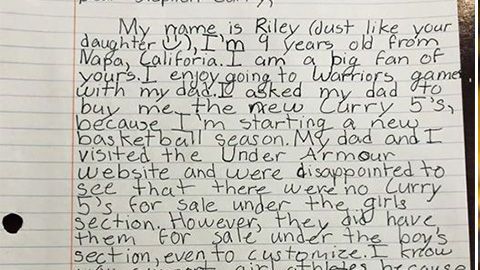 Dear Stephen Curry,
My name is Riley (Just like your
daughter ☺), I'm 9 years old from
Napa, Califoria. I am a big fan of
yours. I enjoy going to Warriors game
with my dad. I asked my dad to
buy me the new Curry 5's,
because I'm starting a new
basketball season. My dad and I
visited the Under Armour
website and were disappointed to
see that there were no Curry
5's for sale under the girls
section. However, they did have
them for sale under the boy's
section, even to customize. I know
support girl athletes because